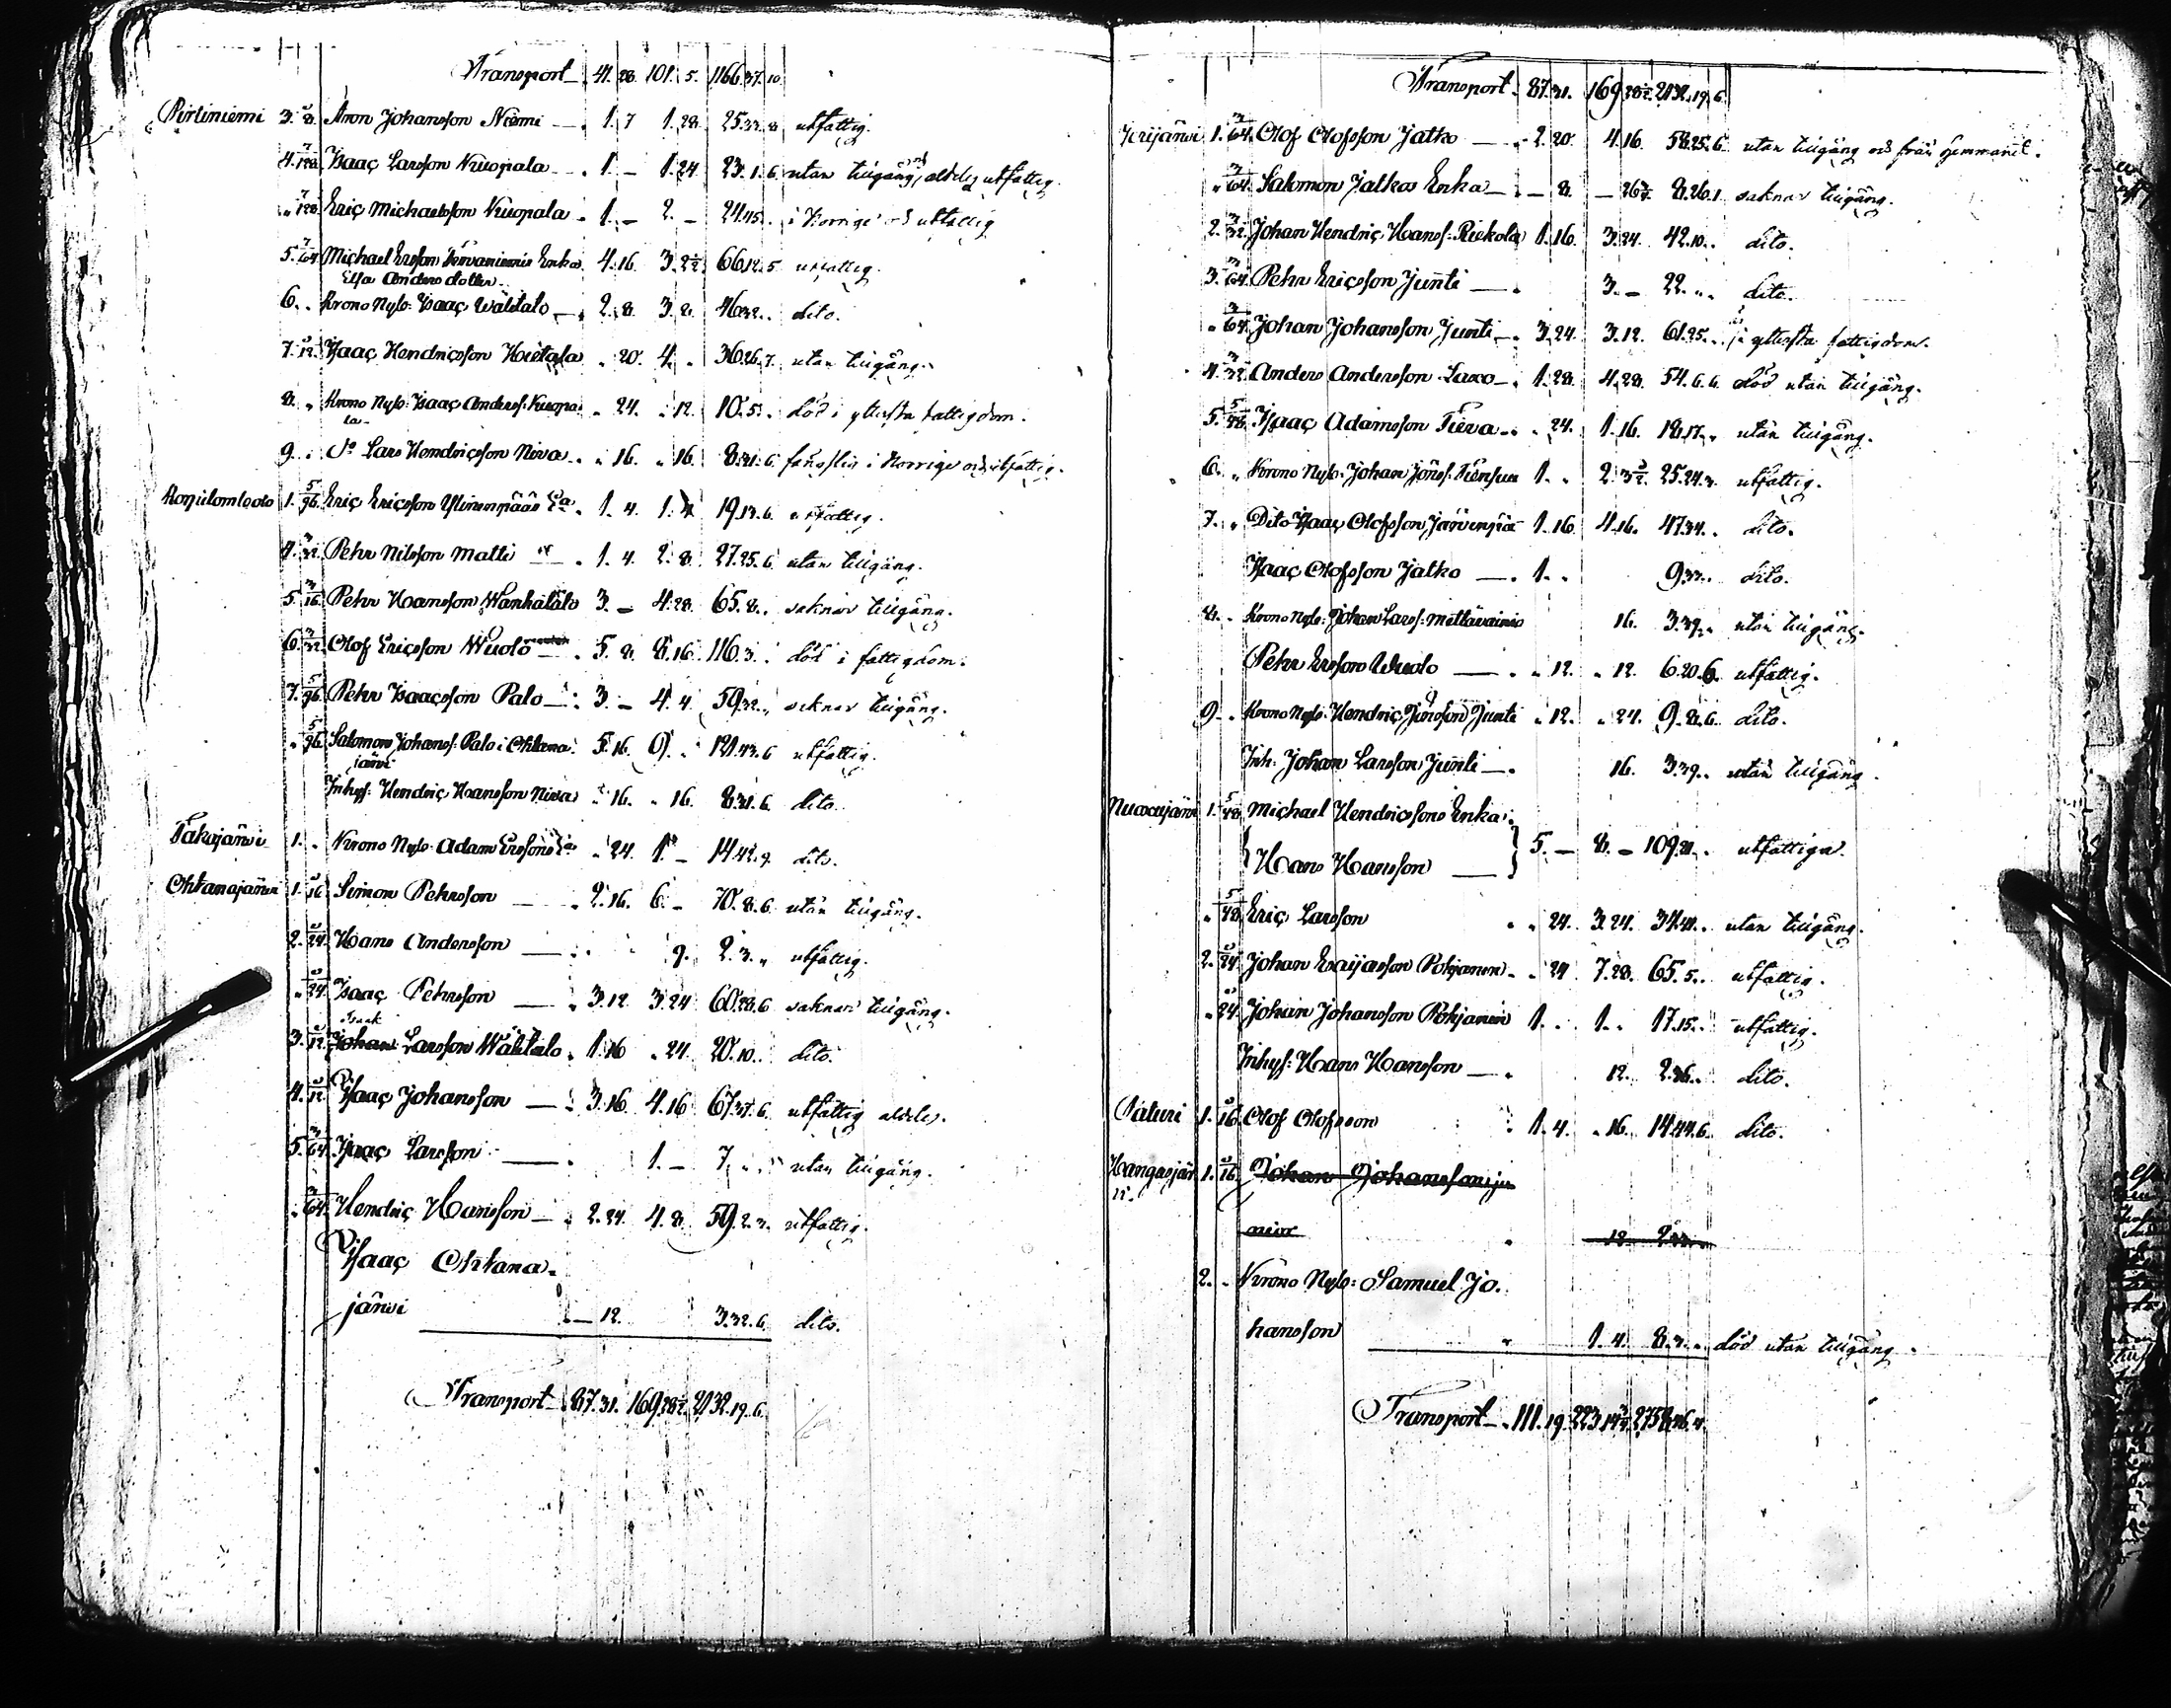 Transport 41. 28. 101. 5. 1166. 37. 10.
Pirtiniemi 3. Aron Johansson Niemi 1. 7 1. 28. 25. 33. 8. utfattig.
4. 7/128 Isaaç Larsson Kuopala 1. – 1. 24. 23. 1. 6. utan tillgång, och aldeles utfattig.
" 7/128 Eriç Michaelsson Kuopala 1. – 2. – 24. 45. i Norrige och utfattig
5. 7/64 Michael Ersson Enka 4. 16. 3. 66. 12. 5 utfattig.
Elsa Anders dotter
6. Krono Nyb: Isaaç Wälitalo 2. 8. 3. 8. 46. 32. dito.
7. Isaaç Hendriçsson Hietala " 20. 4. " 36. 26. 7. utan tillgång.
8. " Krono Nyb: Isaaç Anderss: Kuopa " 24. " 12. 10. 5. död i yttersta fattigdom.
la
9. D:o Lars Hendriçsson Niva " 16. " 16. 8. 31. 6. i Norrige och utfattig.
1. 5/96 Eriç Ericsson 1. 4. 19. 13. 6. utfattig.
4. 3/32 Pehr Nilsson Matti 1. 4. 2. 8. 27. 25. 6. utan tillgång.
5. 3/16 Pehr Hansson Wanhatalo 3. – 4. 28. 65. 8. saknar tillgång.
6. 3/32 Olof Ericsson Wuolo 5. 8. 8. 16. 116. 3. död i fattigdom.
7. 5/96 Pehr Isaacsson Palo 3. – 4. 4. 59. 32. saknar tillgång.
" 5/96 Salomon Johanss: Palo i Ohtana 5. 16. 9. " 121. 43. 6 utfattig.
järvi
Inhys: Hendriç Hansson Niva " 16. " 16. 8. 31. 6. dito.
1. " Krono Nyb: Adam Erssons " 24. 1. – 14. 42. 9. dito.
Ohtanajärvi 1. 1/16 Simon Pehrsson 2. 16. 6. – 70. 8. 6. utan tillgång.
2. 1/24 Hans Andersson 9. 2. 3. " utfattig.
" 1/24 Isaaç Pehrsson 3. 12. 3. 24 60. 28. 6 saknar tillgång.
Isaak
3. 1/12 Johan Larsson Wälitalo 1. 16 " 24. 20. 10. dito.
4. 1/12 Isaaç Johansson 3. 16. 4. 16 67. 37. 6. utfattig aldeles.
5. 3/64 Isaaç Larsson 1. – 7. utan tillgång.
" 3/64 Hendriç Hansson 2. 24. 4. 8. 59. 2. 3. utfattig.
Isaaç Ohtana-
järvi – 12. 3. 32. 6. dito.
Transport 87. 31. 169. 28½. 2132. 19. 6.
Transport 87. 31. 169. 28½. 2132. 19. 6.
Jerijärvi 1. 3/64 Olof Olofsson Jatko 2. 20. 4. 16. 58. 25. 6. utan tillgång och från hemmanet.
" 3/64 Salomon Jatkos Enka – 8. – 8. 26. 1. saknar tillgång.
2. 3/32 Johan Hendriç Hanss: Riekola 1. 16. 3. 24. 42. 10. dito.
3. 3/64 Pehr Ericsson Junti 3. – 22. " " dito.
" 3/64 Johan Johansson Junti 3. 24. 3. 12. 61. 25. i yttersta fattigdom.
4. 3/32 Anders Andersson Laxo 1. 28. 4. 28. 54. 6. 6. död utan tillgång.
5. 5/48 Isaaç Adamsson Tieva " 24. 1. 16. 18. 17. " utan tillgång.
6. " Krono Nyb: Johan Jönss: Tiensuu 1. " 2. 25. 24. 3. utfattig.
7. " Dito Isaaç Olofsson Järvenpää 1. 16. 4. 16. 47. 34. dito.
Isaaç Olofsson Jatko 1. " 9. 33. dito.
8. " Krono Nyb: Johan Larss: Mettävainio 16. 3. 39. utan tillgång.
Pehr Ersson Wuolo " 12. " 12. 6. 20. 6. utfattig.
9. " Krono Nyb: Hendriç Jönsson Junti " 12. " 24. 9. 8. 6. dito.
Inh: Johan Larsson Junti 16. 3. 39. utan tillgång.
1. 5/48 Michael Hendricssons Enka
Hans Hansson 5. – 8. – 109. 21. utfattiga.
" 5/48 Eriç Larsson " 24. 3. 24. 34. 41. utan tillgång.
2. 1/24 Johan Esaijasson Pohjanen " 24 7. 28. 65. 5. utfattig.
" 1/24 Johan Johansson Pohjanen 1. " 1. " 17. 15. utfattig.
Inhys: Hans Hansson 12. 2. 36. dito.
Säturi 1. 1/16 Olof Olofsson 1. 4. " 16. 14. 44. 6. dito.
Kangasjär 1. 1/16 Johan Johansson ju
vi.
nior 12. 2. 33.
2. " Krono Nyb: Samuel Jo-
hansson 1. 4. 8. 3. död utan tillgång.
Transport 111. 19. 223. 2758. 46. 4.